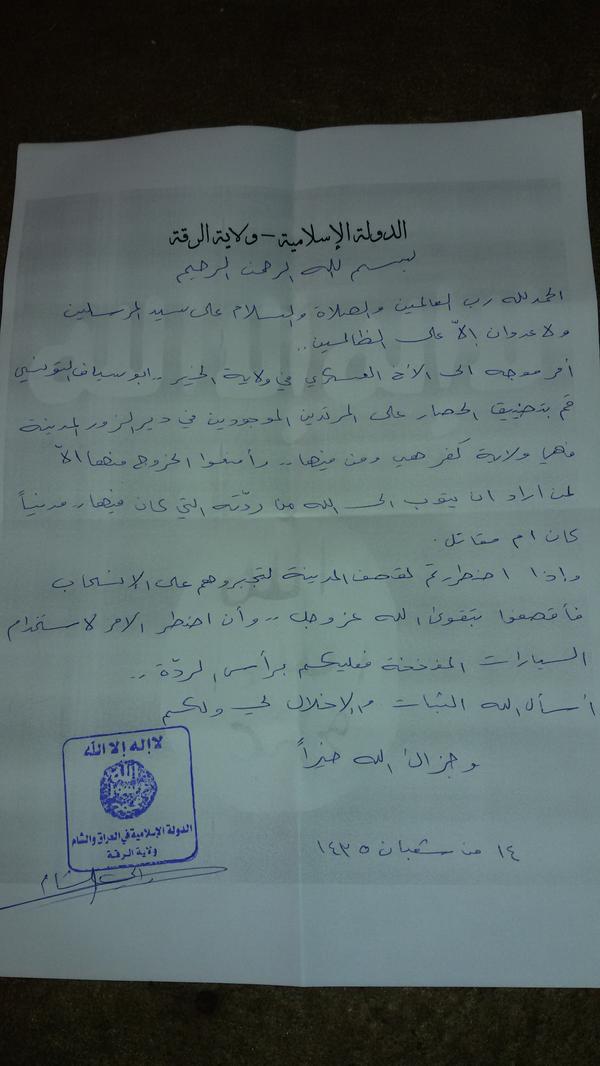 الدولة الإسلامية - ولاية الرقة
بسم الله الرحمن الرحيم
الحمد لله رب العالمين والصلاة والسلام على سيد المرسلين
ولا عدوان الاّ على الظالمين..
أمر موجه الى الأخ العسكري في ولاية الخير.. ابو سياف التونسي
قم بتضييق الحصار على المرتدين الموجودين في دير الزور المدينة
فهي ولاية كفر هي ومن فيها.. وأمنعوا الخروج منها الاّ
لمن اراد ان يتوب الى الله من ردّته التي كان فيها.. مدنياً
كان ام مقاتل.
واذا اضطررتم لقصف المدينة لتجبروهم على الإنسحاب
فأقصفوا بتقوى الله عز وجل.. وأن اضطر الامر لاستخدام
السيارات المفخخة فعليكم برأس الردّة..
أسأل الله الثبات والإخلال لي ولكم
وجزاك الله خيراً
١٤ من شعبان ١٤٣٥
لا إله إلا الله
الله
رسول
محمد
الدولة الإسلامية في العراق والشام
ولاية الرقة